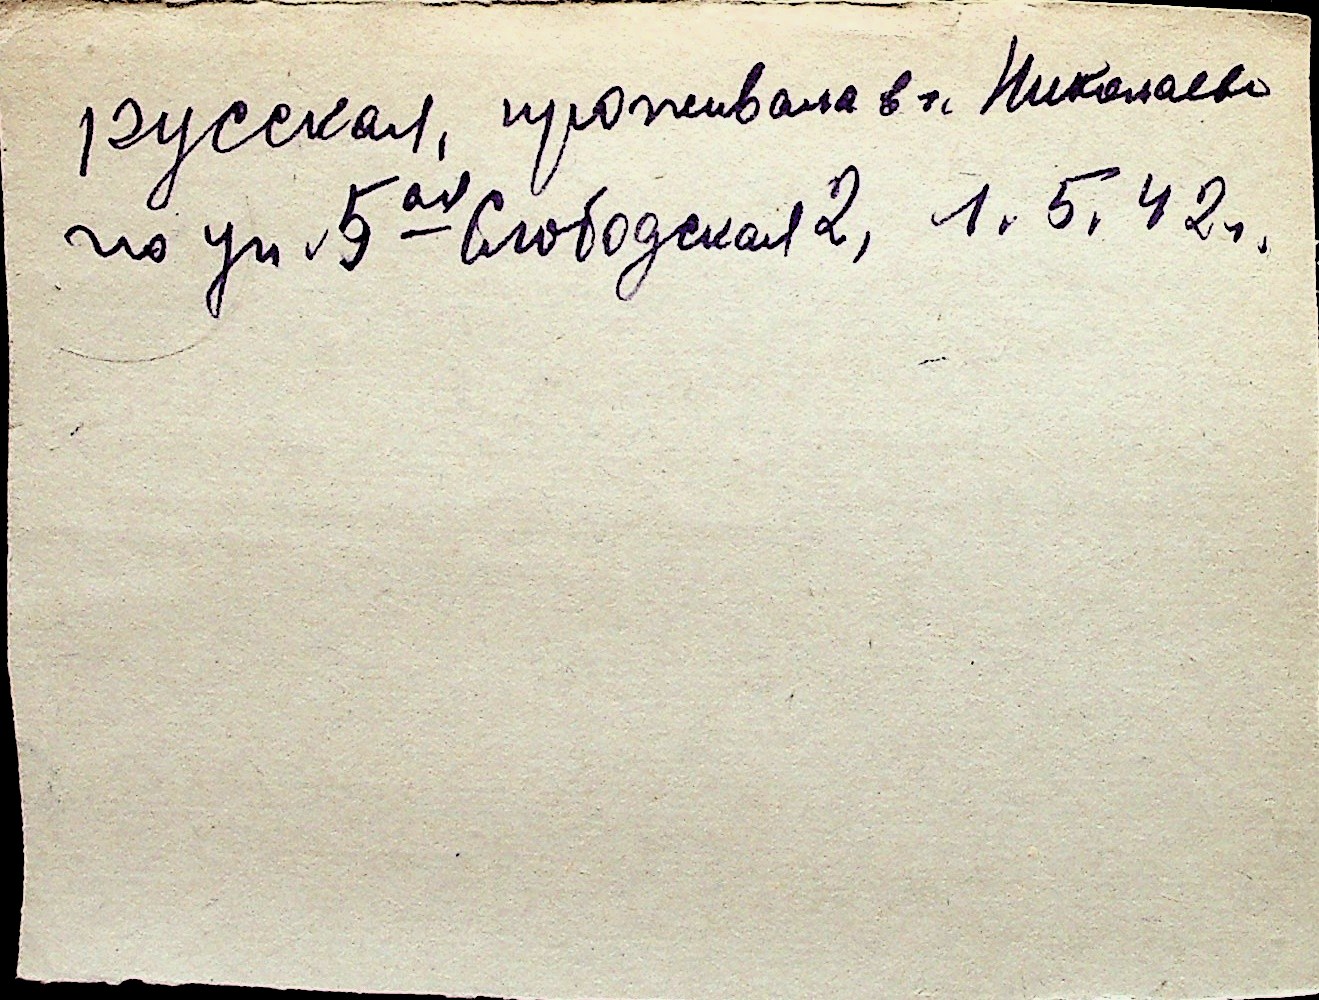 русская, проживала в г. Николаеве
по ул. 5ая Слободская 2, 1. 5. 42 г.